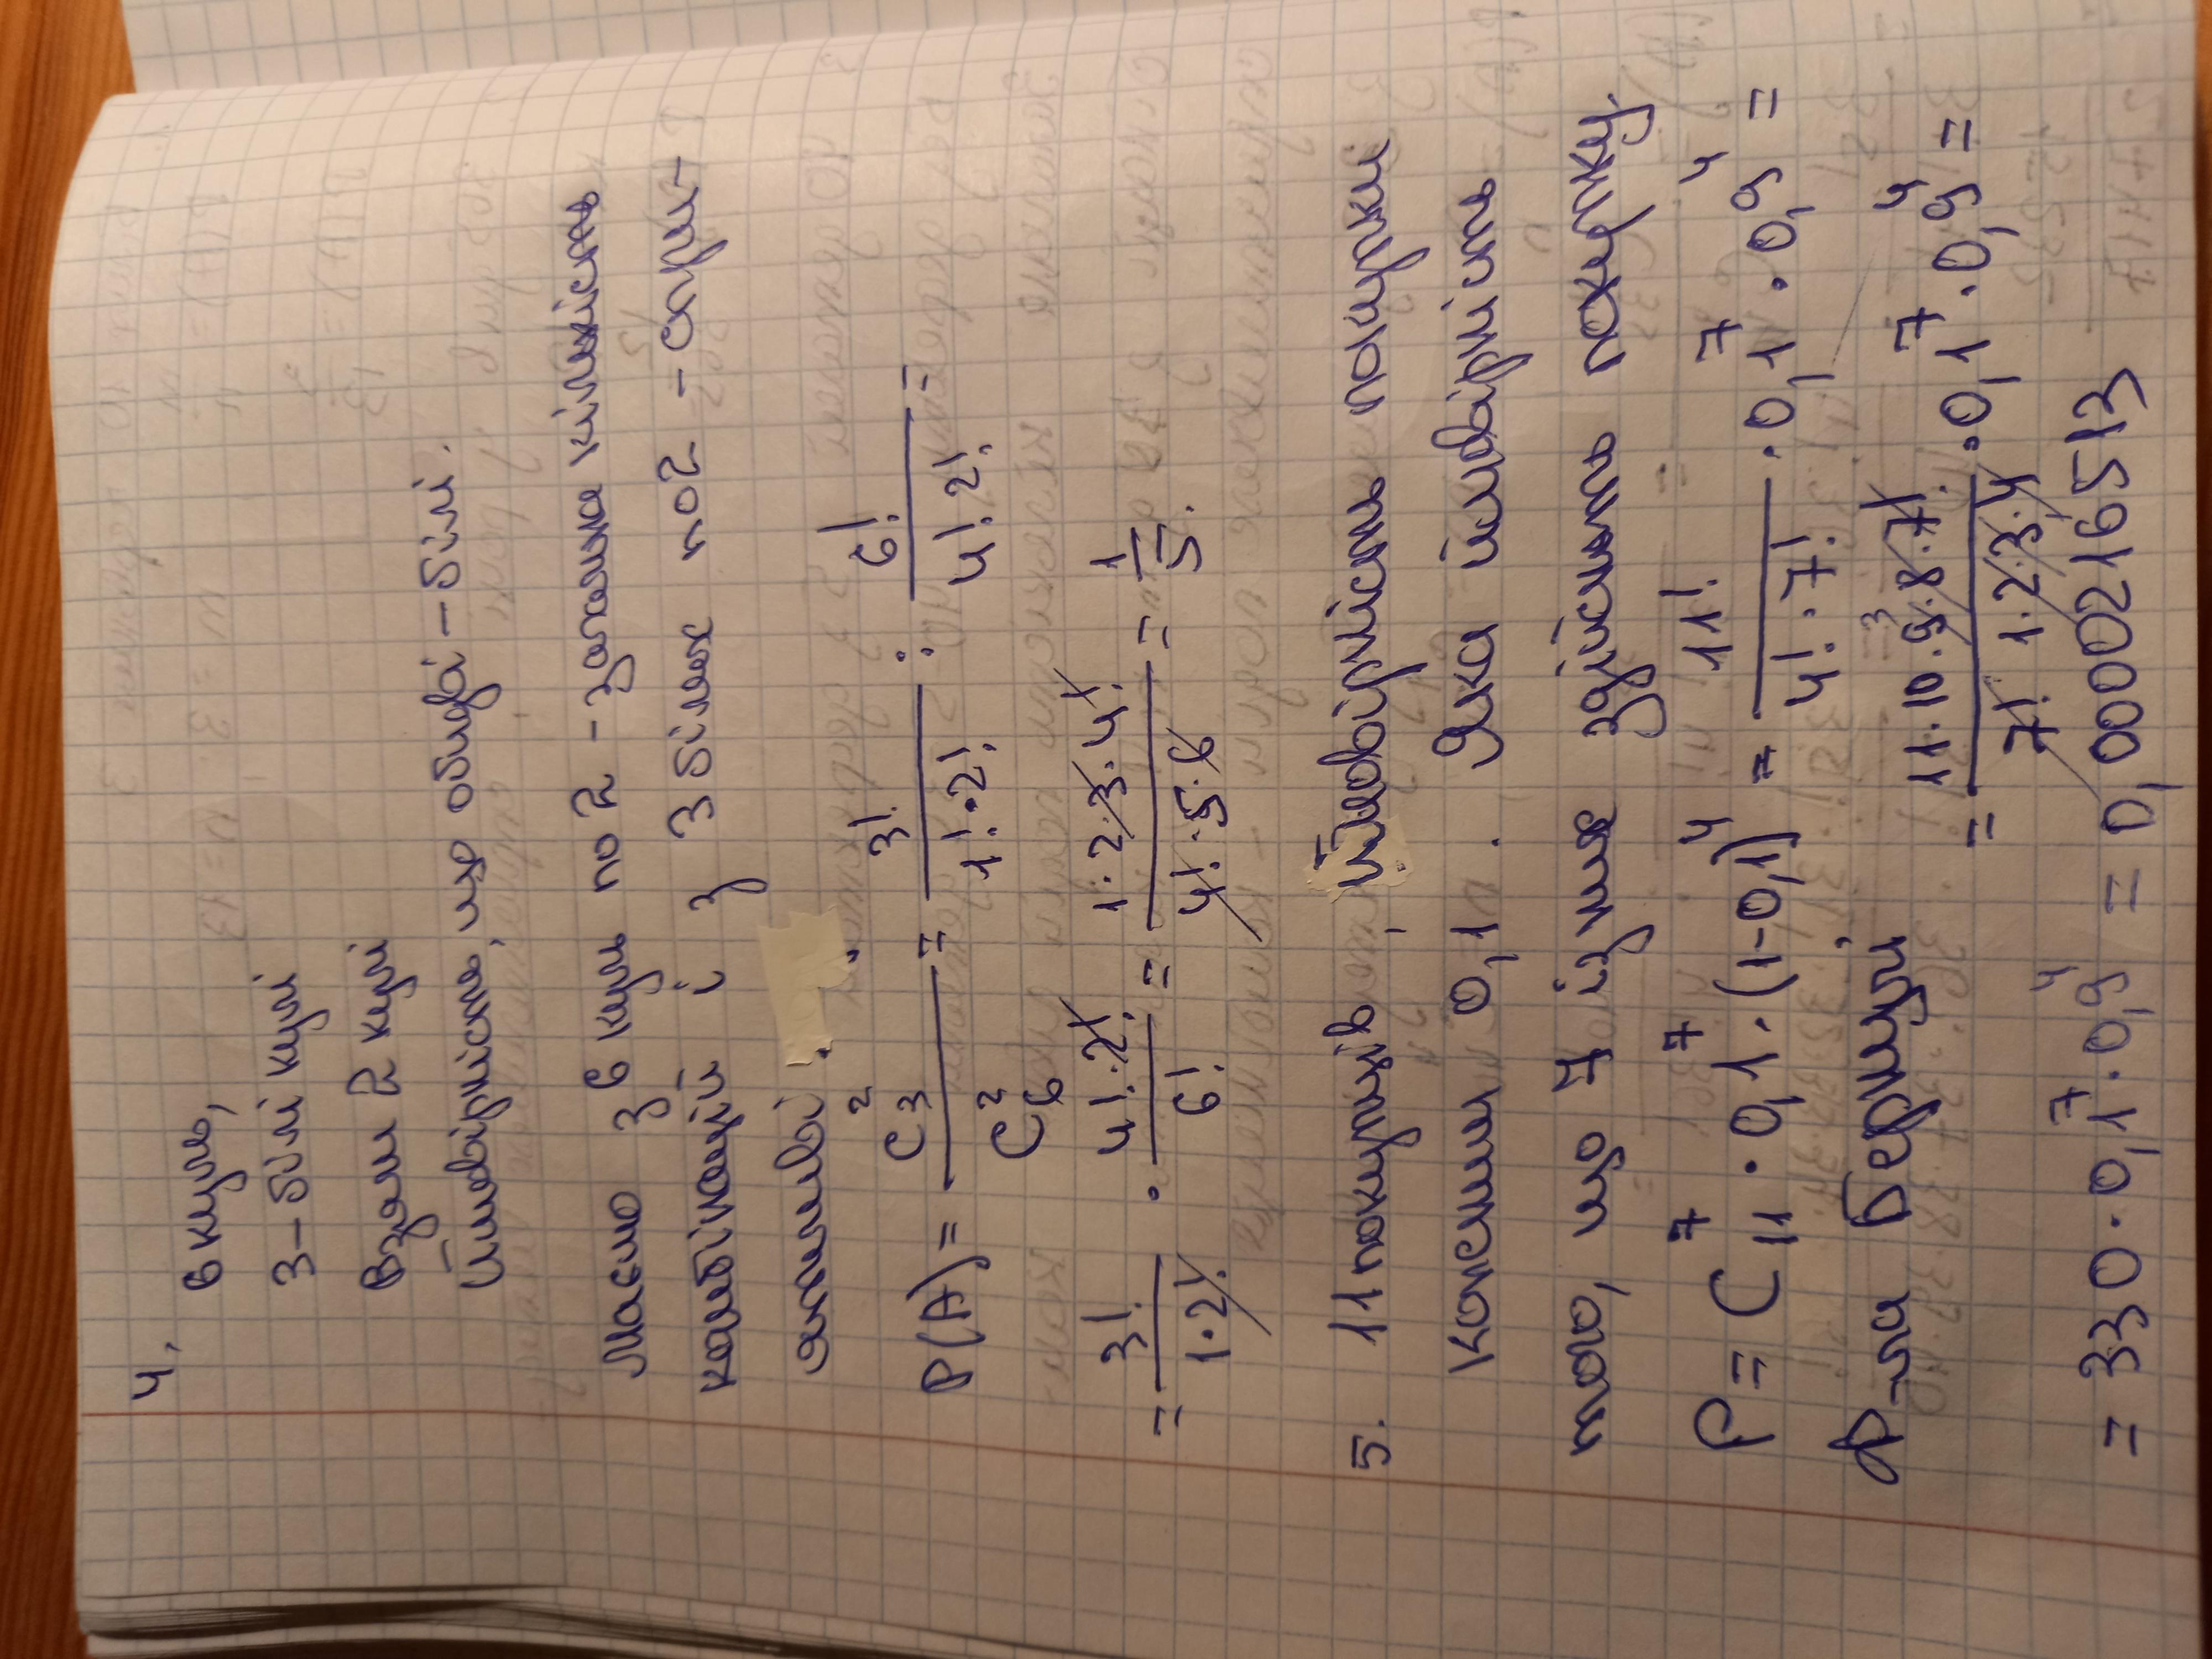 4.
6 куль,
3 – білі кулі
Взяли 2 кулі
Ймовірність, що обидві – білі.
Маємо з 6 куль по 2 – загальна кількість
комбінацій і з 3 білих по 2 – сприят-
ливі
P(A) = C₃² / C₆² = 3! / (1! · 2!) : 6! / (4! · 2!) =
= 3! / (1 · 2!) · (4! · 2!) / 6! = (1 · 2 · 3 · 4!) / (4! · 5 · 6) = 1/5.
5. 11 покупців, ймовірність покупки
кожним 0,1. Яка ймовірність
того, що 7 із них здійснять покупку.
P = C₁₁⁷ · 0,1⁷ · (1-0,1)⁴ = 11! / (4! · 7!) · 0,1⁷ · 0,9⁴ =
Ф-ла Бернуллі
= (11 · 10 · 9³ · 8 · 7!) / (7! 1 · 2 · 3 · 4) · 0,1⁷ · 0,9⁴ =
= 330 · 0,1⁷ · 0,9⁴ = 0,0000216513